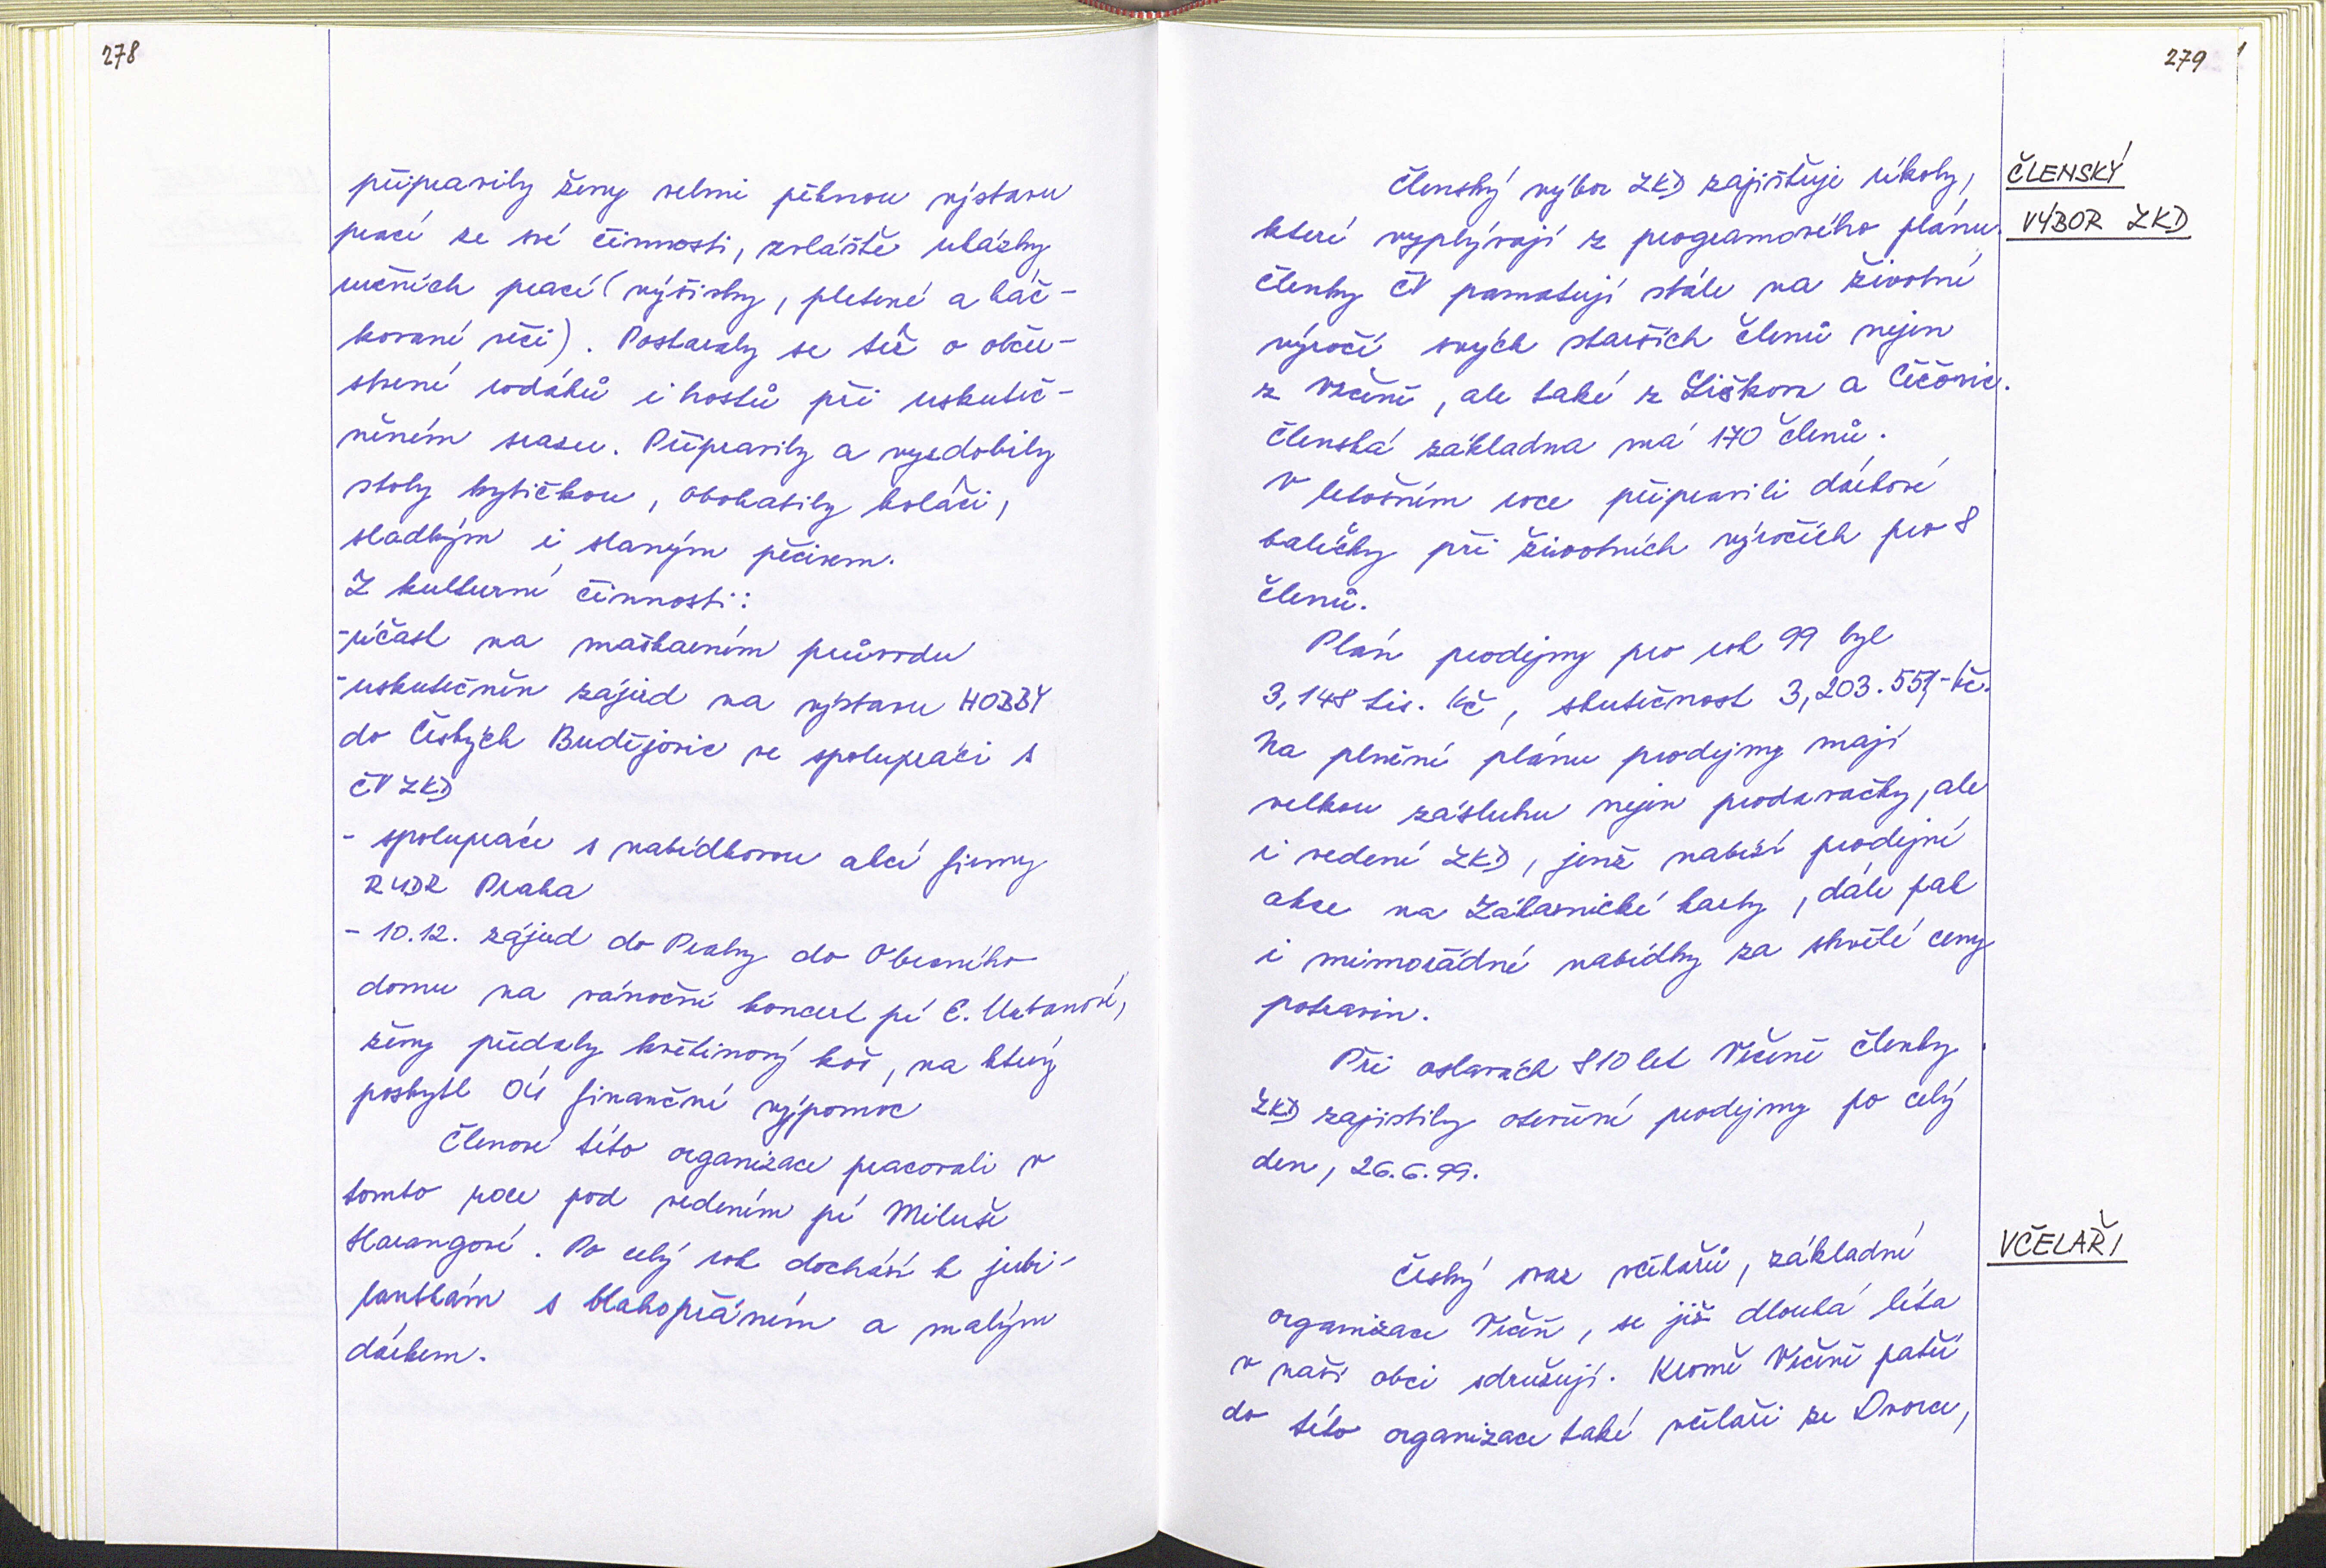 278
připravily ženy velmi pěknou výstavu
prací ze své činnosti, zvláště ukázky
ručních prací (výšivky, pletené a háč-
kované věci). Postaraly se též o obče-
rstvení rodáků i hostů při uskuteč-
něném srazu. Připravily a vyzdobily
stoly kytičkou, obohatily koláči,
sladkým i slaným pečivem.
Z kulturní činnosti:
- účast na maškarním průvodu
- uskutečněn zájezd na výstavu HOBBY
do Českých Budějovic ve spolupráci s
ČV ZKD
- spolupráce s nabídkovou akcí firmy
Praha
- 10.12. zájezd do Prahy do Obecního
domu na vánoční koncert pí E. Urbanové,
ženy předaly květinový koš, na který
poskytl OÚ finanční výpomoc
Členové této organizace pracovali v
tomto roce pod vedením pí Miluše
Harangové. Po celý rok dochází k jubi-
lantkám s blahopřáním a malým
dárkem.
279
ČLENSKÝ
VÝBOR ZKD
Členský výbor ZKD zajišťuje úkoly,
které vyplývají z programového plánu.
Členky ČV pamatují stále na životní
výročí svých starších členů nejen
z Vrčeně, ale také z Liškova a Čečovic.
Členská základna má 170 členů.
V letošním roce připravili dárkové
balíčky při životních výročích pro 8
členů.
Plán prodejny pro rok 99 byl
3,148 tis. Kč, skutečnost 3,203.551,- Kč.
Na plnění plánu prodejny mají
velkou zásluhu nejen prodavačky, ale
i vedení ZKD, jenž nabízí prodejní
akce na Zákaznické karty, dále pak
i mimořádné nabídky za skvělé ceny
potravin.
Při oslavách 810 let Vrčeně členky
ZKD zajistily otevření prodejny po celý
den, 26.6.99.
VČELAŘI
Český svaz včelařů, základní
organizace Vrčeň, se již dlouhá léta
v naší obci sdružují. Kromě Vrčeně patří
do této organizace také včelaři ze Dvorce,